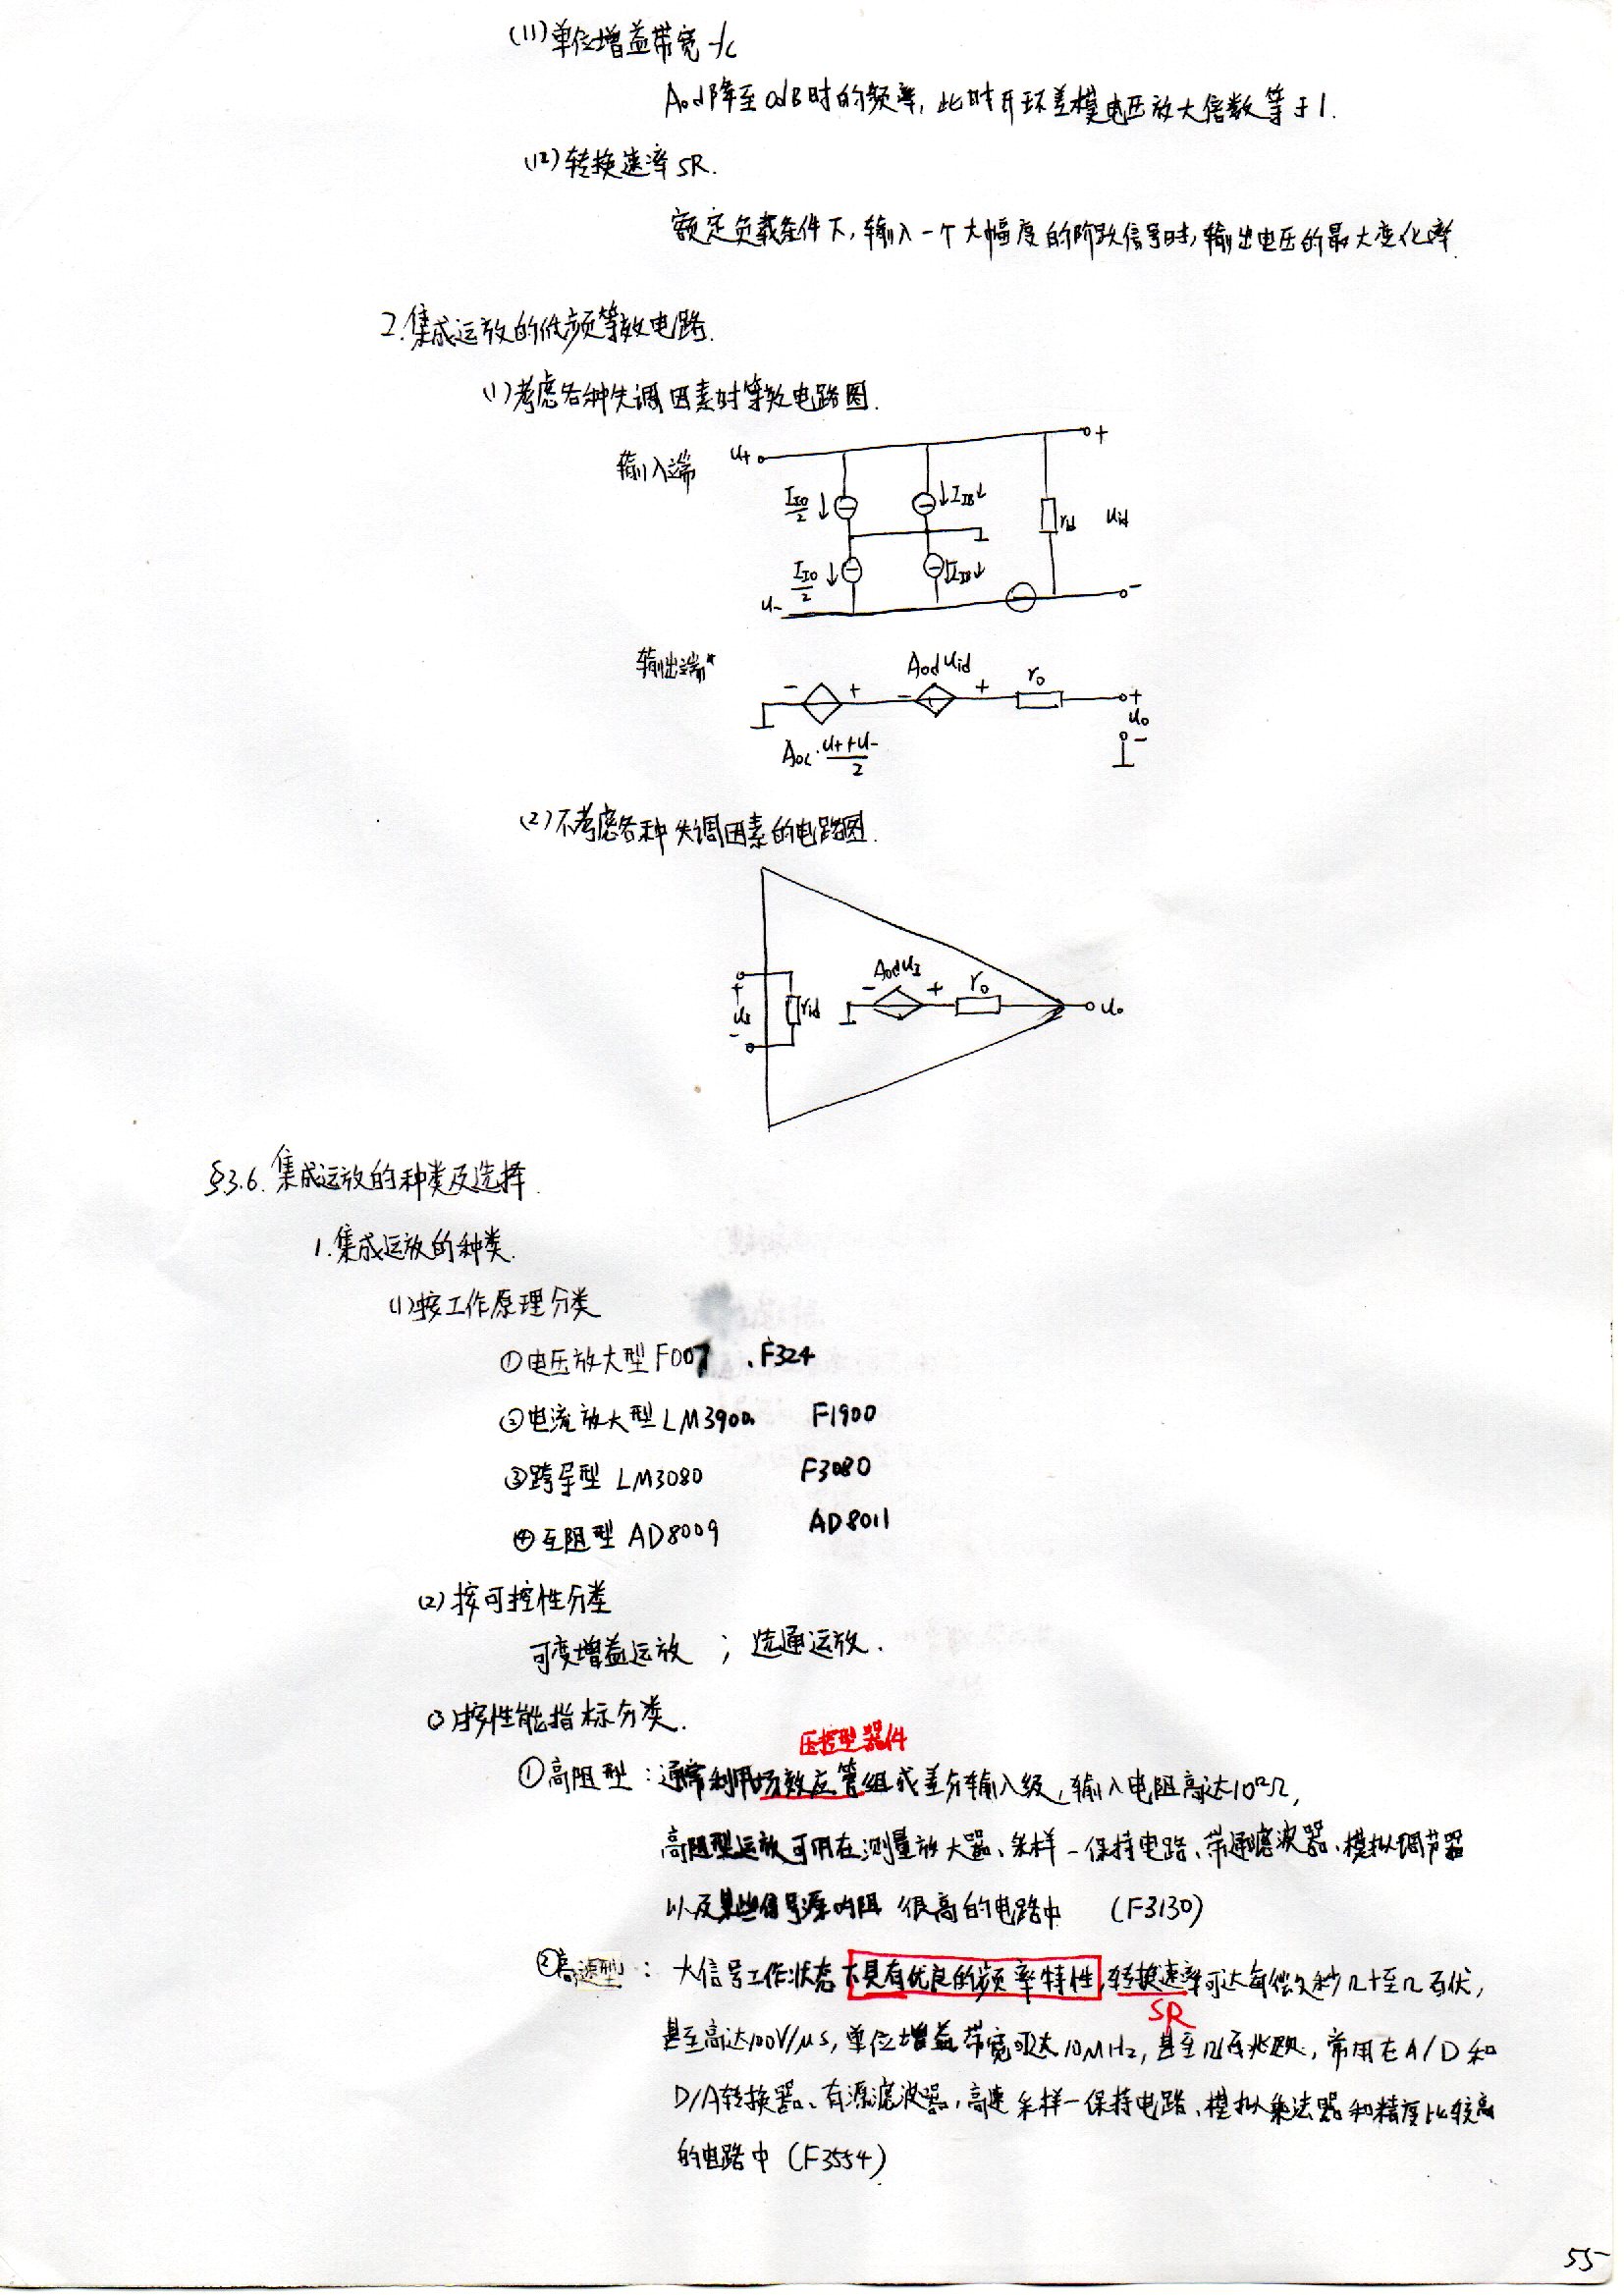 (11)单位增益带宽fc
Aod降至0dB时的频率,此时开环差模电压放大倍数等于1.
(12)转换速率SR.
额定负载条件下,输入一个大幅度的阶跃信号时,输出电压的最大变化率.
2.集成运放的低频等效电路.
(1)考虑各种失调因素时等效电路图.
输入端
u+
+
IIO/2
↓
↓IIB↓
rid
uid
IIO/2
↓
↓IIB↓
u-
-
输出端
-
+
Aoduid
-
+
ro
+
uo
-
Aoc·(u++u-)/2
(2)不考虑各种失调因素的电路图.
+
uI
-
rid
-
AoduI
+
ro
uo
§3.6.集成运放的种类及选择.
1.集成运放的种类.
(1)按工作原理分类
①电压放大型F007 、F324
②电流放大型LM3900 F1900
③跨导型 LM3080 F3080
④互阻型 AD8009 AD8011
(2)按可控性分类
可变增益运放 ; 选通运放.
(3)按性能指标分类.
压控型器件
①高阻型:通常利用场效应管组成差分输入级,输入电阻高达10¹²Ω,
高阻型运放可用在测量放大器、采样-保持电路、带通滤波器、模拟调节器
以及某些信号源内阻 很高的电路中 (F3130)
②高速型: 大信号工作状态下具有优良的频率特性,转换速率可达每微秒几十至几百伏,
SR
甚至高达100V/μs,单位增益带宽可达10MHz,甚至几百兆欧,常用在A/D和
D/A转换器、有源滤波器,高速采样-保持电路、模拟乘法器和精度比较高
的电路中(F3554)
55